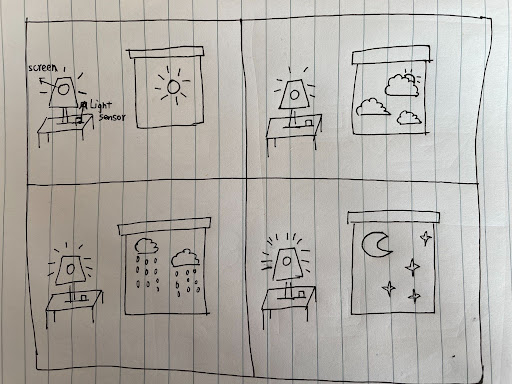 screen
Light
sensor